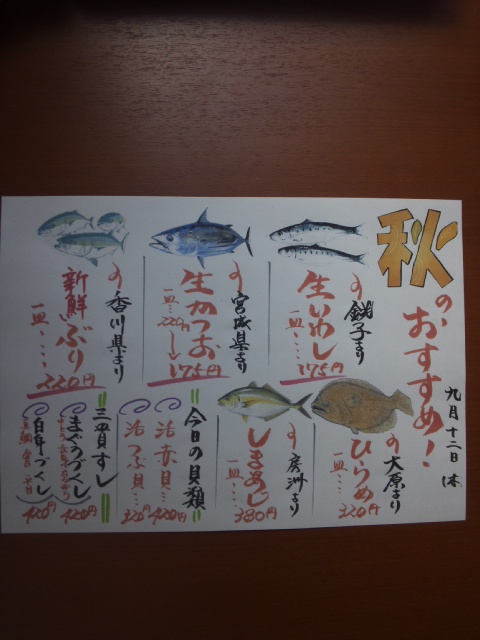 秋のおすすめ！
九月十二日（木
銚子より
生いわし
一皿・・・175円
宮城県より
生かつお
一皿・・・220円→175円
香川県より
新鮮ぶり
一皿・・・・220円
大原より
ひらめ
一皿・・・220円
房洲より
しまあじ
一皿・・・380円
今日の貝類
活赤貝・・・420円
活つぶ貝・・・320円
三貫すし
まぐろづくし
420円
白身づくし
420円